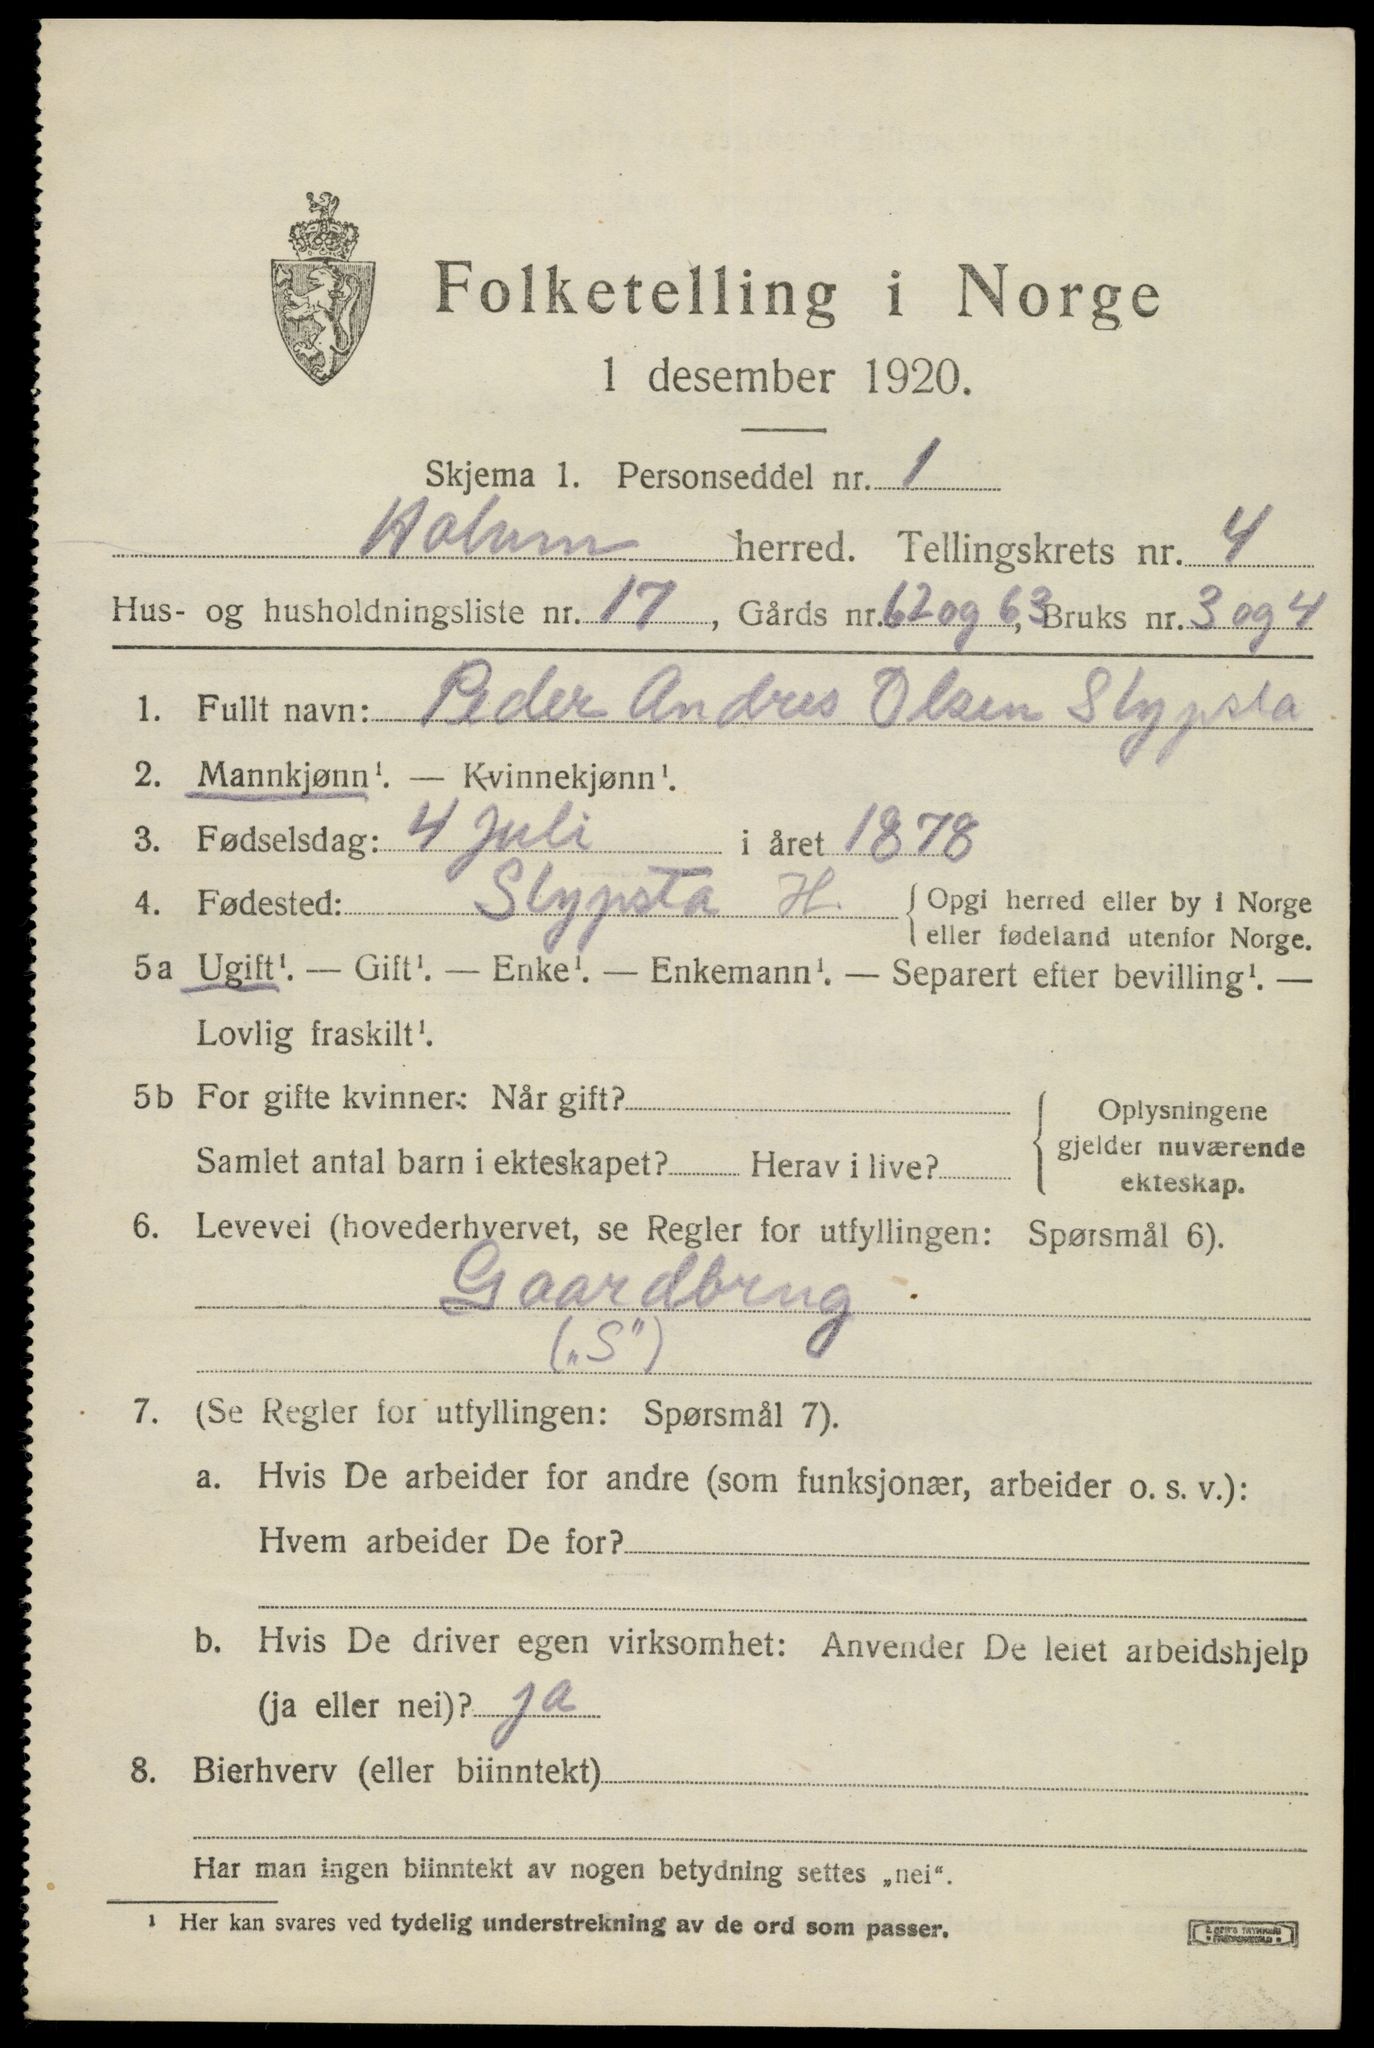 Folketelling i Norge
1 desember 1920.
Skjema 1. Personseddel nr. 1
Holum herred. Tellingskrets nr. 4
Hus- og husholdningsliste nr. 17, Gårds nr. 62 og 63, Bruks nr. 3 og 4
1. Fullt navn: Peder Andres Olsen Slypsta
2. Mannkjønn¹. — Kvinnekjønn¹.
3. Fødselsdag: 4 juli i året 1878
4. Fødested: Slypsta H. { Opgi herred eller by i Norge
eller fødeland utenfor Norge.
5a Ugift¹. — Gift¹. — Enke¹. — Enkemann¹. — Separert efter bevilling¹. —
Lovlig fraskilt¹.
5b For gifte kvinner: Når gift?
Samlet antal barn i ekteskapet? Herav i live?
{ Oplysningene
gjelder nuværende
ekteskap.
6. Levevei (hovederhvervet, se Regler for utfyllingen: Spørsmål 6).
Gaardbrug
(„S")
7. (Se Regler for utfyllingen: Spørsmål 7).
a. Hvis De arbeider for andre (som funksjonær, arbeider o. s. v.):
Hvem arbeider De for?
b. Hvis De driver egen virksomhet: Anvender De leiet arbeidshjelp
(ja eller nei)? ja
8. Bierhverv (eller biinntekt)
Har man ingen biinntekt av nogen betydning settes „nei“.
¹ Her kan svares ved tydelig understrekning av de ord som passer.